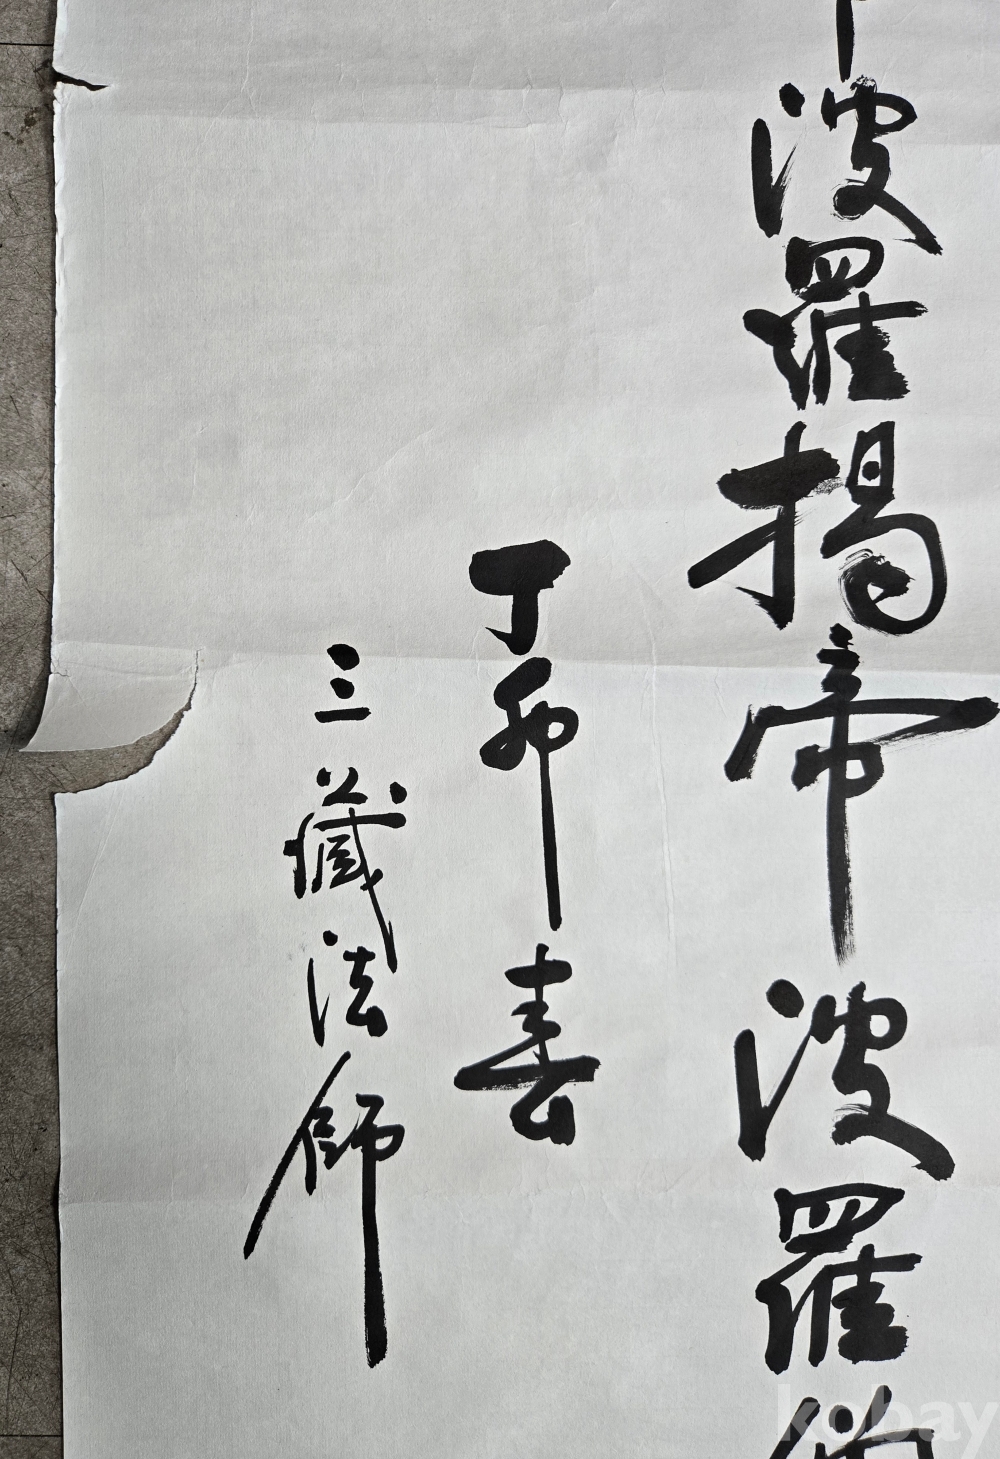 波羅揭帝 波羅僧
丁卯春
三藏法師
kobay